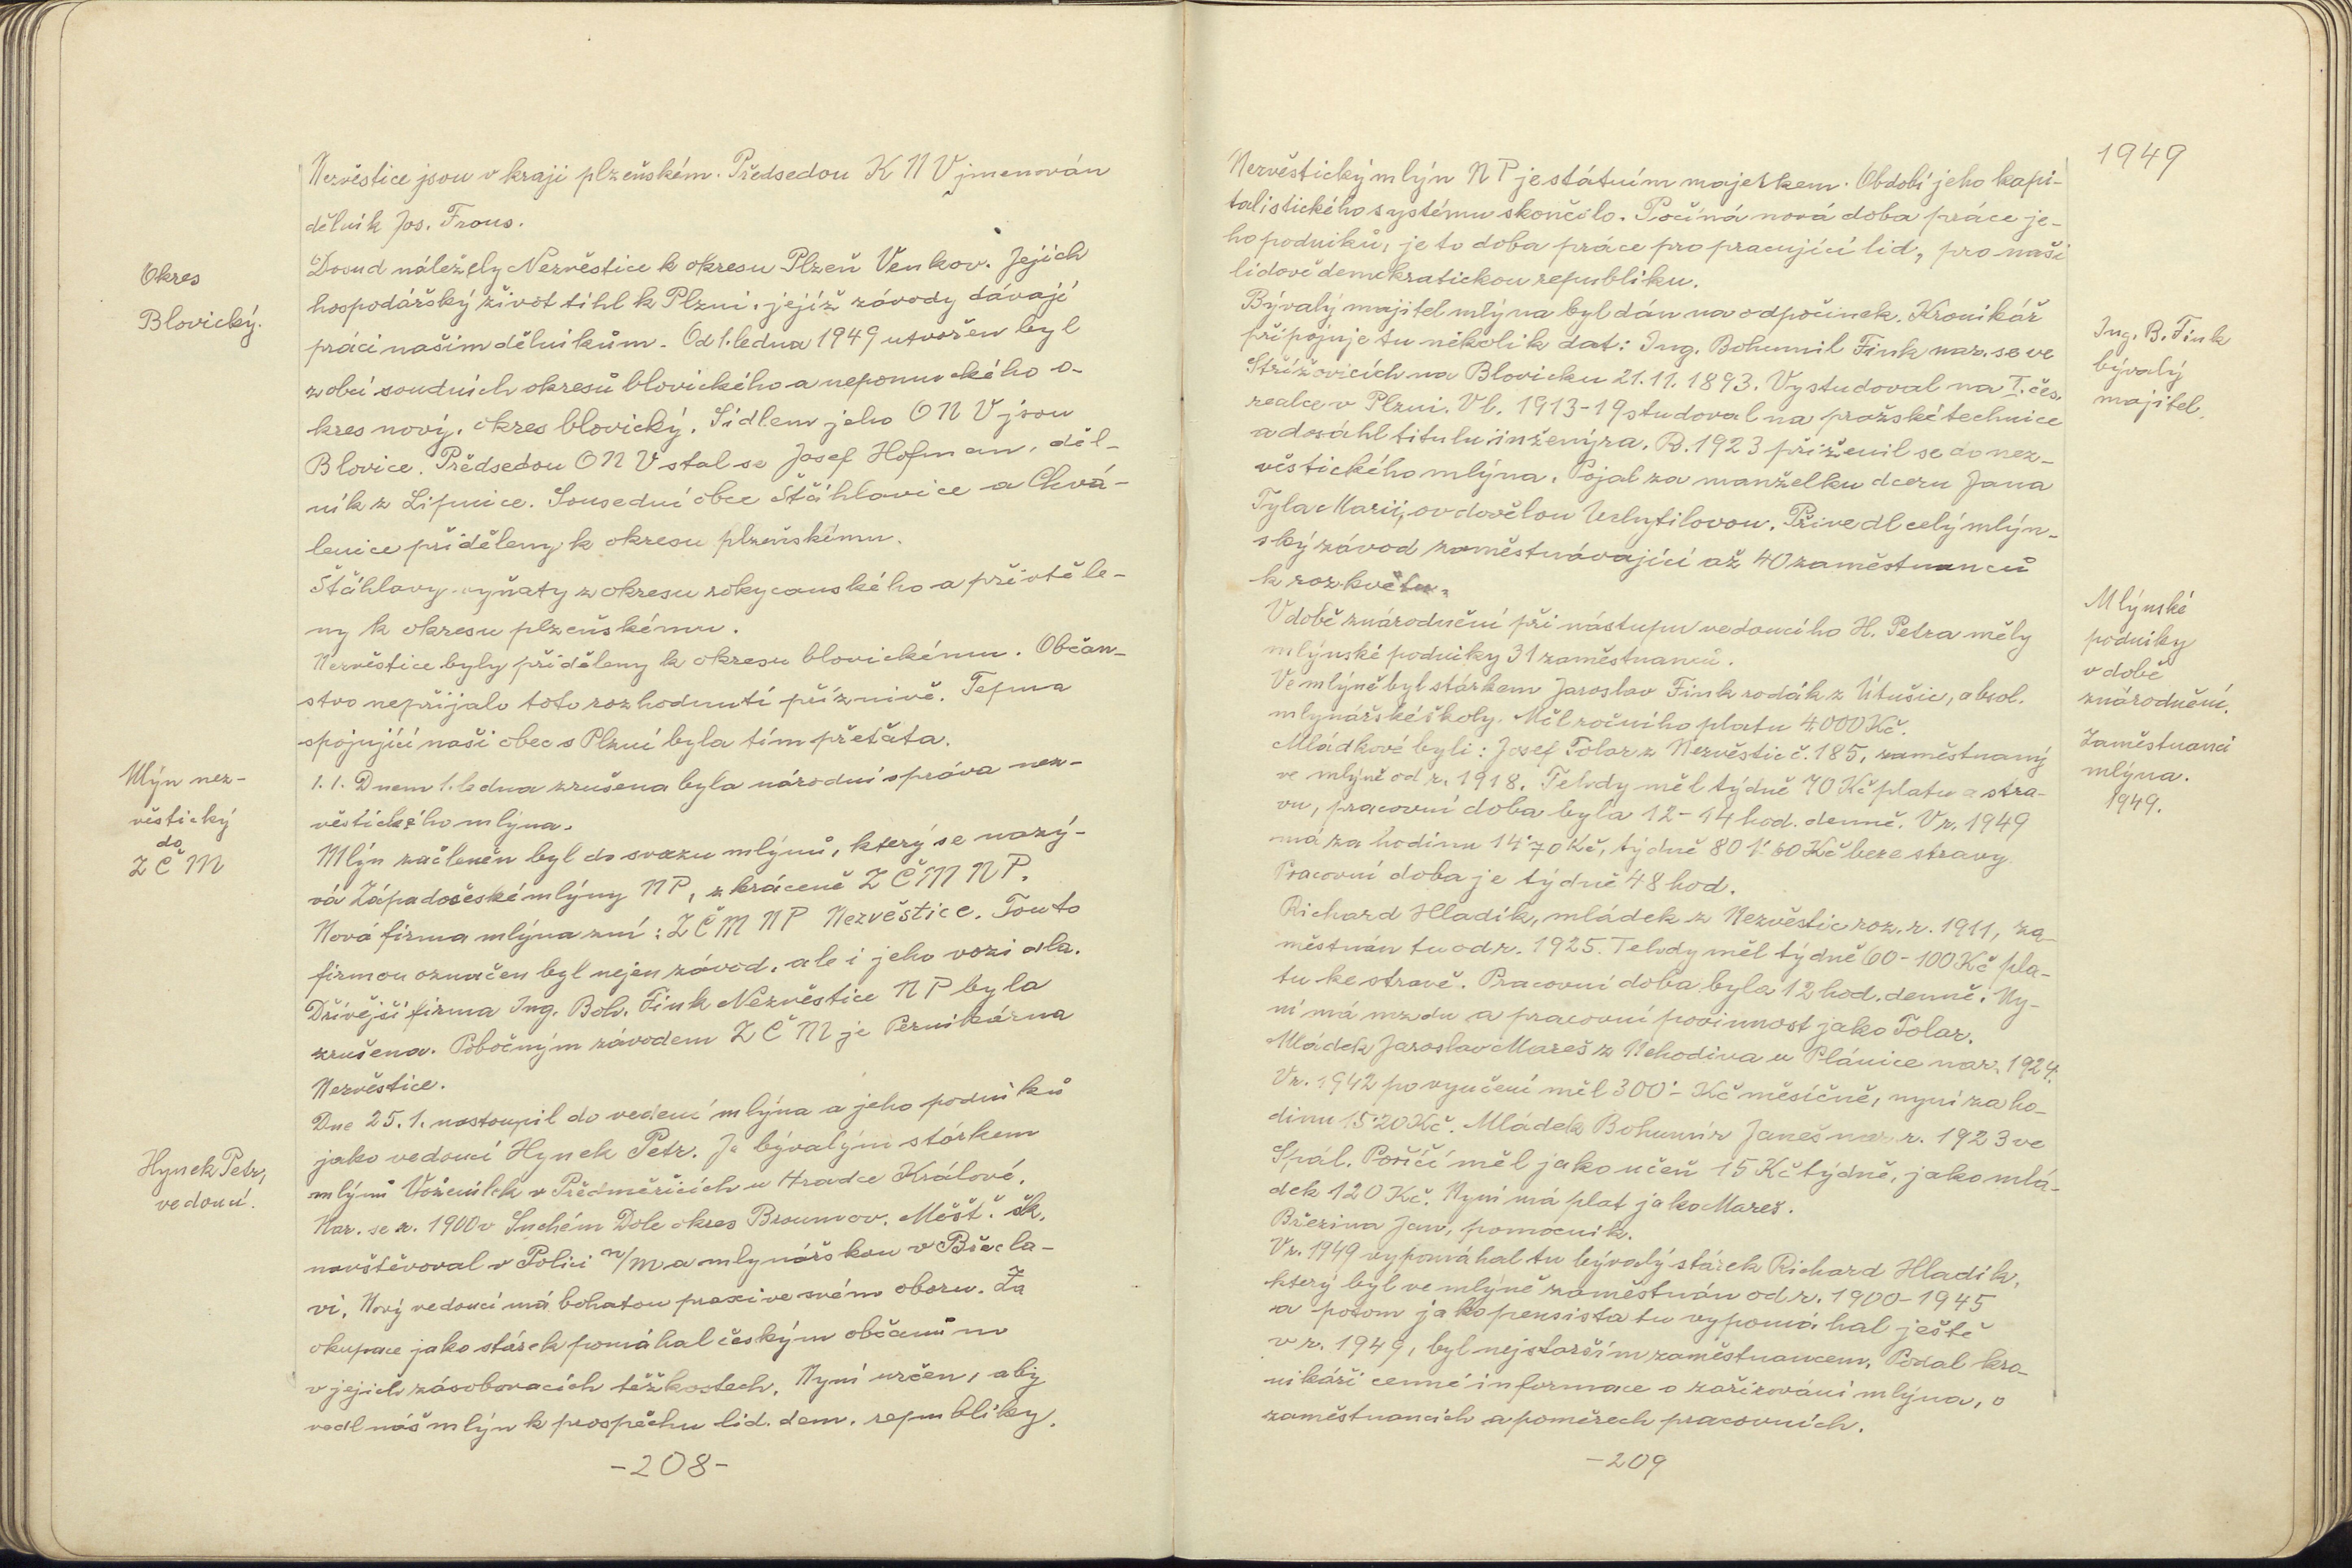 Nezvěstice jsou v kraji plzeňském. Předsedou KNV jmenován
dělník Jos. Frous.
Okres
Blovický.
Dosud náležely Nezvěstice k okresu Plzeň Venkov. Jejich
hospodářský život tíhl k Plzni, jejíž závody dávají
práci našim dělníkům. Od 1. ledna 1949 utvořen byl
z obcí soudních okresů blovického a nepomuckého o-
kres nový, okres blovický. Sídlem jeho ONV jsou
Blovice. Předsedou ONV stal se Josef Hofman, děl-
ník z Lipnice. Sousední obce Štáhlavice a Chvá-
lenice přiděleny k okresu plzeňskému.
Štáhlavy vyňaty z okresu rokycanského a přivtěle-
ny k okresu plzeňskému.
Nezvěstice byly přiděleny k okresu blovickému. Občan-
stvo nepřijalo toto rozhodnutí příznivě. Tepna
spojující naši obec s Plzní byla tím přeťata.
Mlýn nez-
věstický
do
ZČM
1. 1. Dnem 1. ledna zrušena byla národní správa nez-
věstického mlýna.
Mlýn začleněn byl do svazu mlýnů, který se nazý-
vá Západočeské mlýny NP, zkráceně ZČM NP.
Nová firma mlýna zní: ZČM NP Nezvěstice. Touto
firmou označen byl nejen závod, ale i jeho vozidla.
Dřívější firma Ing. Boh. Fink Nezvěstice NP byla
zrušena. Pobočným závodem ZČM je Pernikárna
Nezvěstice.
Hynek Petr,
vedoucí.
Dne 25. 1. nastoupil do vedení mlýna a jeho podniků
jako vedoucí Hynek Petr. Je bývalým stárkem
mlýnů Voženílek v Předměřicích u Hradce Králové.
Nar. se r. 1900 v Suchém Dole okres Broumov. Měšť. šk.
navštěvoval v Polici n/M a mlynářskou v Břecla-
vi. Nový vedoucí má bohatou praxi ve svém oboru. Za
okupace jako stárek pomáhal českým občanům
v jejich zásobovacích těžkostech. Nyní určen, aby
vedl náš mlýn k prospěchu lid. dem. republiky.
-208-
1949
Nezvěstický mlýn NP je státním majetkem. Období jeho kapi-
talistického systému skončilo. Počíná nová doba práce je-
ho podniků, je to doba práce pro pracující lid, pro naši
lidově demokratickou republiku.
Ing. B. Fink
bývalý
majitel.
Bývalý majitel mlýna byl dán na odpočinek. Kronikář
připojuje tu několik dat: Ing. Bohumil Fink nar. se ve
Střížovicích na Blovicku 21. 11. 1893. Vystudoval na I. čes.
realce v Plzni. V l. 1913-19 studoval na pražské technice
a dosáhl titulu inženýra. R. 1923 přiženil se do nez-
věstického mlýna. Pojal za manželku dceru Jana
Tyla Marii, ovdovělou Uchytilovou. Přivedl celý mlýn-
ský závod zaměstnávající až 40 zaměstnanců
k rozkvětu.
Mlýnské
podniky
v době
znárodnění.
V době znárodnění při nástupu vedoucího H. Petra měly
mlýnské podniky 31 zaměstnanců.
Ve mlýně byl stárkem Jaroslav Fink rodák z Útušic, absol.
mlynářské školy. Měl ročního platu 4.000 Kč.
Zaměstnanci
mlýna.
1949.
Mládkové byli: Josef Tolar z Nezvěstic č. 185, zaměstnaný
ve mlýně od r. 1918. Tehdy měl týdně 70 Kč platu a stra-
vu, pracovní doba byla 12-14 hod. denně. V r. 1949
má za hodinu 14·70 Kč, týdně 801·60 Kč beze stravy.
Pracovní doba je týdně 48 hod.
Richard Hladík, mládek z Nezvěstic roz. r. 1911, za-
městnán tu od r. 1925. Tehdy měl týdně 60-100 Kč pla-
tu ke stravě. Pracovní doba byla 12 hod. denně. Ny-
ní má mzdu a pracovní povinnost jako Tolar.
Mládek Jaroslav Mareš z Nehodiva u Plánice nar. 1924.
V r. 1942 po vyučení měl 300·- Kč měsíčně, nyní za ho-
dinu 15·20 Kč. Mládek Bohumír Janeš nar. r. 1923 ve
Spál. Poříčí měl jako učeň 15 Kč týdně, jako mlá-
dek 120 Kč. Nyní má plat jako Mareš.
Březina Jan, pomocník.
V r. 1949 vypomáhal tu bývalý stárek Richard Hladík,
který byl ve mlýně zaměstnán od r. 1900-1945
a potom jako pensista tu vypomáhal ještě
v r. 1949, byl nejstarším zaměstnancem. Podal kro-
nikáři cenné informace o zařizování mlýna, o
zaměstnancích a poměrech pracovních.
-209